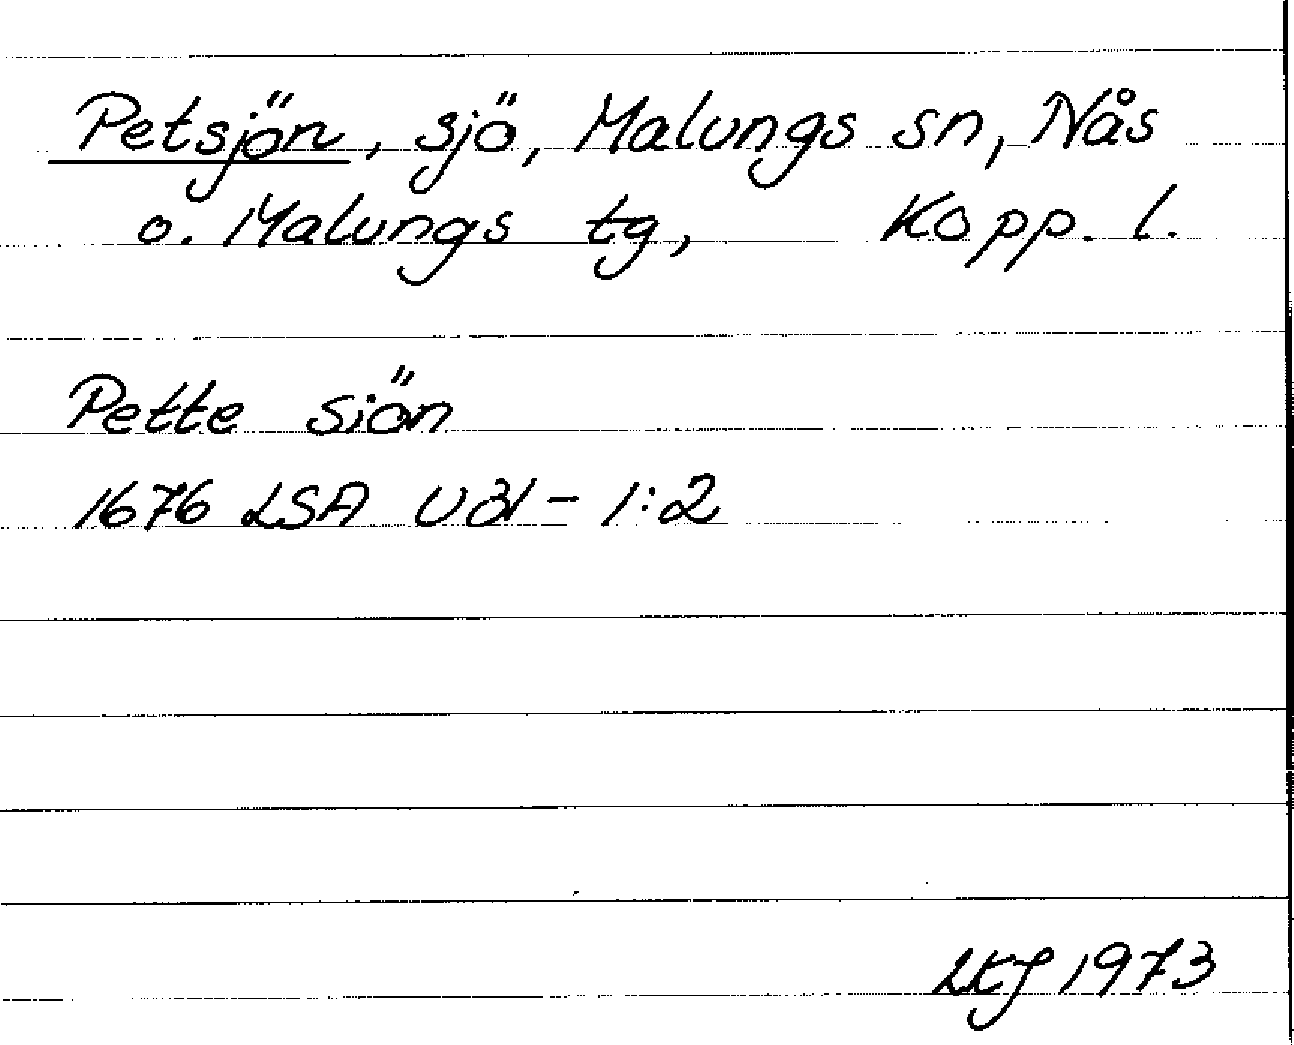 Petsjön, sjö, Malungs sn, Nås
o. Malungs tg, Kopp. l.
Pette siön
1676 LSA U31-1:2
1973